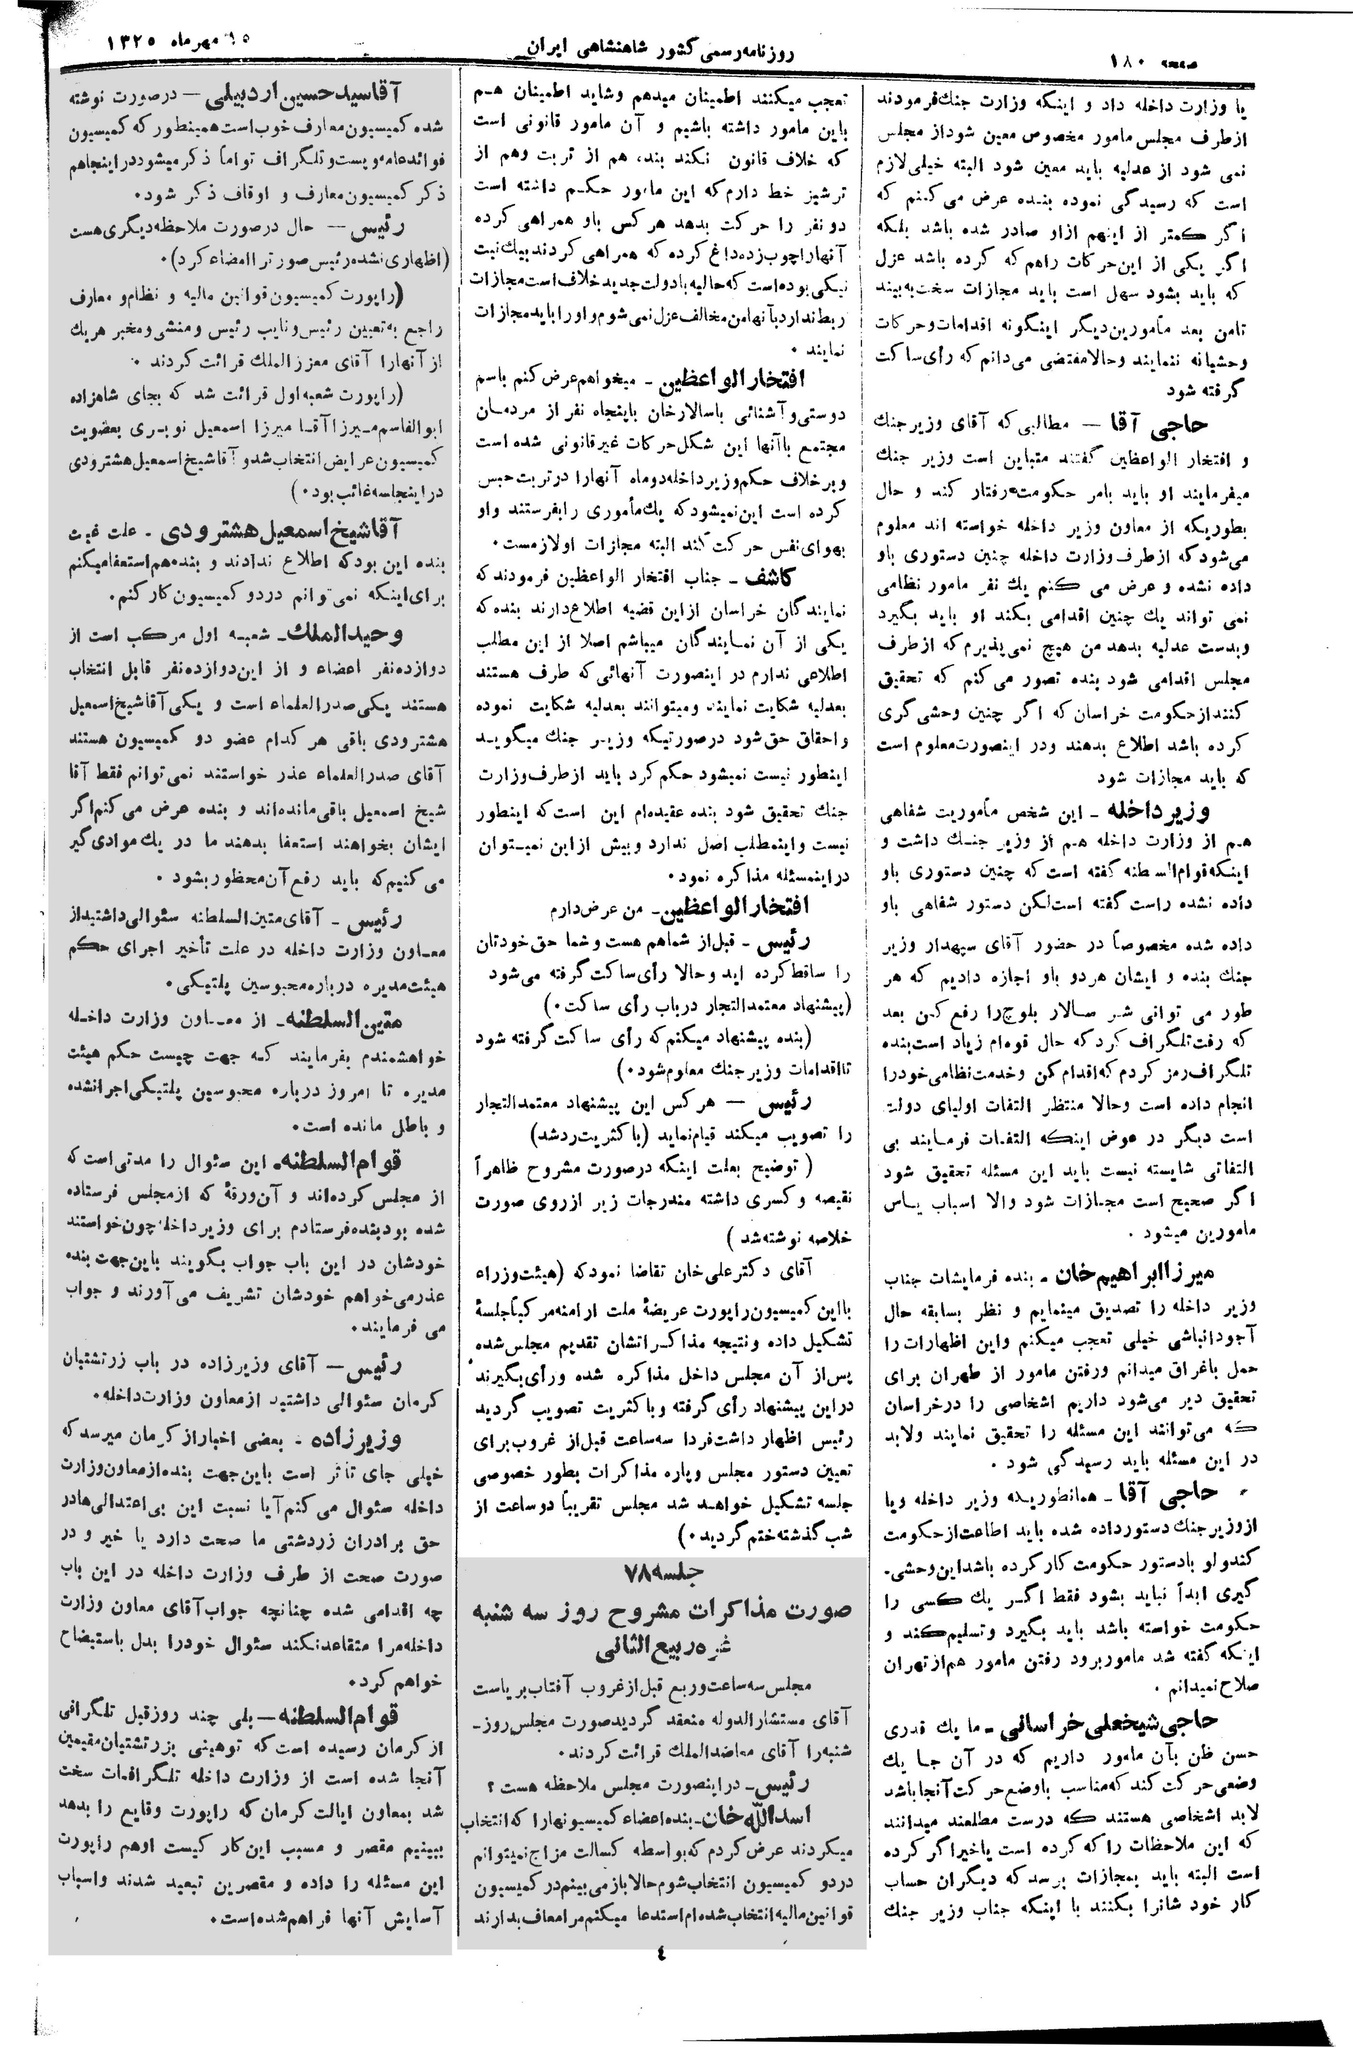 صفحه ۱۸۰
روزنامه رسمی کشور شاهنشاهی ایران
۱۵ مهرماه ۱۳۲۵
یا وزارت داخله داد و اینکه وزارت جنك فرمودند
از طرف مجلس مامور مخصوص معین شود از مجلس
نمی شود از عدلیه باید معین شود البته خیلی لازم
است که رسیدگی نموده بنده عرض می کنم که
اگر کمتر از اینهم از او صادر شده باشد بلکه
اگر یکی از این حرکات راهم که کرده باشد عزل
که باید بشود سهل است باید مجازات سخت به بیند
تامن بعد مأمورین دیگر اینگونه اقدامات و حرکات
وحشیانه ننمایند وحالا مقتضی می دانم که رأی ساکت
گرفته شود
حاجی آقا — مطالبی که آقای وزیر جنك
و افتخار الواعظین گفتند متباین است وزیر جنك
میفرمایند او باید بامر حکومت رفتار کند و حال
بطوریکه از معاون وزیر داخله خواسته اند معلوم
می‌شود که از طرف وزارت داخله چنین دستوری باو
داده نشده و عرض می کنم یك نفر مامور نظامی
نمی تواند یك چنین اقدامی بکند او باید بگیرد
وبدست عدلیه بدهد من هیچ نمی پذیرم که از طرف
مجلس اقدامی شود بنده تصور می کنم که تحقیق
کنند از حکومت خراسان که اگر چنین وحشی گری
کرده باشد اطلاع بدهند ودر اینصورت معلوم است
که باید مجازات شود
وزیر داخله - این شخص مأموریت شفاهی
هم از وزارت داخله هم از وزیر جنك داشت و
اینکه قوام السلطنه گفته است که چنین دستوری باو
داده نشده راست گفته است لکن دستور شفاهی باو
داده شده مخصوصاً در حضور آقای سپهدار وزیر
جنك بنده و ایشان هردو باو اجازه دادیم که هر
طور می توانی شر سالار بلوچ را رفع کن بعد
که رفت تلگراف کرد که حال قوه‌ام زیاد است بنده
تلگراف رمز کردم که اقدام کن وخدمت نظامی خود را
انجام داده است وحالا منتظر التفات اولیای دولت
است دیگر در عوض اینکه التفات فرمایند بی
التفاتی شایسته نیست باید این مسئله تحقیق شود
اگر صحیح است مجازات شود والا اسباب یاس
مامورین میشود .
میرزا ابراهیم خان - بنده فرمایشات جناب
وزیر داخله را تصدیق مینمایم و نظر بسابقه حال
آجودانباشی خیلی تعجب میکنم واین اظهارات را
حمل باغراق میدانم ورفتن مامور از طهران برای
تحقیق دیر می‌شود داریم اشخاصی را در خراسان
که می‌توانند این مسئله را تحقیق نمایند ولابد
در این مسئله باید رسیدگی شود .
حاجی آقا - همانطوریکه وزیر داخله ویا
از وزیر جنك دستور داده شده باید اطاعت از حکومت
کند و لو بادستور حکومت کار کرده باشد این وحشی-
گیری ابداً نباید بشود فقط اگر یك کسی را
حکومت خواسته باشد باید بگیرد وتسلیم کند و
اینکه گفته شد مامور برود رفتن مامور هم از تهران
صلاح نمیدانم .
حاجی شیخعلی خراسانی - ما یك قدری
حسن ظن بآن مامور داریم که در آن جا یك
وضعی حرکت کند که مناسب باوضع حرکت آنجا باشد
لابد اشخاصی هستند که درست مطلعند میدانند
که این ملاحظات را که کرده است یاخیر اگر کرده
است البته باید بمجازات برسد که دیگران حساب
کار خود شانرا بکنند با اینکه جناب وزیر جنك
تعجب میکنند اطمینان میدهم وشاید اطمینان هم
باین مامور داشته باشیم و آن مامور قانونی است
که خلاف قانون نکند بنده هم از تربت وهم از
ترشیز خط دارم که این مامور حکم داشته است
دو نفر را حرکت بدهد هرکس باو همراهی کرده
آنها را چوب زده داغ کرده که همراهی کردند بیك نیت
نیکی بوده است که حالیه بادولت جدید خلاف است مجازات
ربط ندارد بآنها من مخالف عزل نمی شوم و او را باید مجازات
نمایند .
افتخار الواعظین - میخواهم عرض کنم باسم
دوستی و آشنائی باسالار خان باپنجاه نفر از مردمان
مجتمع باآنها این شکل حرکات غیر قانونی شده است
وبر خلاف حکم وزیر داخله دوماه آنها را در تربت حبس
کرده است این نمیشود که یك مأموری را بفرستند واو
بهوای نفس حرکت کند البته مجازات او لازمست .
کاشف - جناب افتخار الواعظین فرمودند که
نمایندگان خراسان از این قضیه اطلاع دارند بنده که
یکی از آن نمایندگان میباشم اصلا از این مطلب
اطلاعی ندارم در اینصورت آنهائی که طرف هستند
بعدلیه شکایت نمایند و میتوانند بعدلیه شکایت نموده
و احقاق حق شود درصورتیکه وزیر جنك میگوید
اینطور نیست نمیشود حکم کرد باید از طرف وزارت
جنك تحقیق شود بنده عقیده‌ام این است که اینطور
نیست و اینمطلب اصل ندارد وبیش از این نمیتوان
در اینمسئله مذاکره نمود .
افتخار الواعظین - من عرض دارم
رئیس - قبل از شماهم هست وشما حق خودتان
را ساقط کرده اید وحالا رأی ساکت گرفته می‌شود
(پیشنهاد معتمدالتجار درباب رأی ساکت .)
(بنده پیشنهاد میکنم که رأی ساکت گرفته شود
تا اقدامات وزیر جنك معلوم شود .)
رئیس — هرکس این پیشنهاد معتمدالتجار
را تصویب میکند قیام نماید (با کثریت رد شد)
( توضیح بعلت اینکه درصورت مشروح ظاهراً
نقیصه و کسری داشته مندرجات زیر از روی صورت
خلاصه نوشته شد )
آقای دکتر علی خان تقاضا نمود که (هیئت وزراء
بااین کمیسیون راپورت عریضهٔ ملت ارامنه مرکباً جلسهٔ
تشکیل داده و نتیجه مذاکراتشان تقدیم مجلس شده
پس از آن مجلس داخل مذاکره شده ورأی بگیرند
در این پیشنهاد رأی گرفته و باکثریت تصویب گردید
رئیس اظهار داشت فردا سه ساعت قبل از غروب برای
تعیین دستور مجلس و پاره مذاکرات بطور خصوصی
جلسه تشکیل خواهد شد مجلس تقریباً دو ساعت از
شب گذشته ختم گردید .)
جلسه ۷۸
صورت مذاکرات مشروح روز سه شنبه
غره ربیع الثانی
مجلس سه ساعت وربع قبل از غروب آفتاب بریاست
آقای مستشار الدوله منعقد گردید صورت مجلس روز-
شنبه را آقای معاضد الملك قرائت کردند .
رئیس - در اینصورت مجلس ملاحظه هست ؟
اسدالله خان - بنده اعضاء کمیسیونها را که انتخاب
میکردند عرض کردم که بواسطه کسالت مزاج نمیتوانم
در دو کمیسیون انتخاب شوم حالا باز می بینم در کمیسیون
قوانین مالیه انتخاب شده ام استدعا میکنم مرا معاف بدارند
آقا سید حسین اردبیلی — در صورت نوشته
شده کمیسیون معارف خوب است همینطور که کمیسیون
فوائد عامه و پست و تلگراف تواماً ذکر میشود در اینجا هم
ذکر کمیسیون معارف و اوقاف ذکر شود .
رئیس — حال درصورت ملاحظه دیگری هست
(اظهاری نشده رئیس صورت را امضاء کرد) .
(راپورت کمیسیون قوانین مالیه و نظام و معارف
راجع به تعیین رئیس و نایب رئیس و منشی و مخبر هریك
از آنها را آقای معزز الملك قرائت کردند .
(راپورت شعبه اول قرائت شد که بجای شاهزاده
ابوالقاسم میرزا آقا میرزا اسمعیل نوبری بعضویت
کمیسیون عرایض انتخاب شد و آقا شیخ اسمعیل هشترودی
در اینجلسه غائب بود .)
آقا شیخ اسمعیل هشترودی - علت غیبت
بنده این بود که اطلاع ندادند و بنده هم استعفا میکنم
برای اینکه نمی توانم در دو کمیسیون کار کنم .
وحید الملك - شعبه اول مرکب است از
دوازده نفر اعضاء و از این دوازده نفر قابل انتخاب
هستند یکی صدر العلماء است و یکی آقا شیخ اسمعیل
هشترودی باقی هر کدام عضو دو کمیسیون هستند
آقای صدر العلماء عذر خواستند نمی توانم فقط آقا
شیخ اسمعیل باقی مانده‌اند و بنده عرض می کنم اگر
ایشان بخواهند استعفا بدهند ما در یك موادی گیر
می کنیم که باید رفع آن محظور بشود .
رئیس - آقای متین السلطنه سئوالی داشتید از
معاون وزارت داخله در علت تأخیر اجرای حکم
هیئت مدیره درباره محبوسین پلتیکی .
متین السلطنه - از معاون وزارت داخله
خواهشمندم بفرمایند که جهت چیست حکم هیئت
مدیره تا امروز درباره محبوسین پلتیکی اجرا نشده
و باطل مانده است .
قوام السلطنه - این سئوال را مدتی است که
از مجلس کرده‌اند و آن ورقهٔ که از مجلس فرستاده
شده بود بنده فرستادم برای وزیر داخله چون خواستند
خودشان در این باب جواب بگویند باین جهت بنده
عذر می خواهم خودشان تشریف می آورند و جواب
می فرمایند .
رئیس — آقای وزیر زاده در باب زرتشتیان
کرمان سئوالی داشتید از معاون وزارت داخله .
وزیر زاده - بعضی اخبار از کرمان میرسد که
خیلی جای تأثر است باین جهت بنده از معاون وزارت
داخله سئوال می کنم آیا نسبت این بی اعتدالی ها در
حق برادران زردشتی ما صحت دارد یا خیر و در
صورت صحت از طرف وزارت داخله در این باب
چه اقدامی شده چنانچه جواب آقای معاون وزارت
داخله مرا متقاعد نکند سئوال خود را بدل باستیضاح
خواهم کرد .
قوام السلطنه — بلی چند روز قبل تلگرافی
از کرمان رسیده است که توهینی بزرتشتیان مقیمین
آنجا شده است از وزارت داخله تلگرافات سخت
شد بمعاون ایالت کرمان که راپورت وقایع را بدهد
ببینیم مقصر و مسبب این کار کیست اوهم راپورت
این مسئله را داده و مقصرین تبعید شدند واسباب
آسایش آنها فراهم شده است .
٤